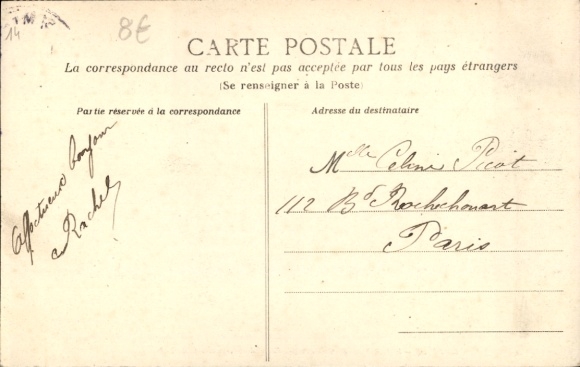 14
8€
CARTE POSTALE
La correspondance au recto n'est pas acceptée par tous les pays étrangers
(Se renseigner à la Poste)
Partie réservée à la correspondance
Adresse du destinataire
Affectueux bonjour
Rachel
Mlle Celine Picot
112 Bd Rochechouart
Paris